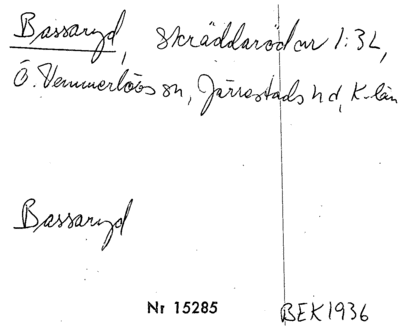 Bassaryd, Skräddaröd nr 1:32,
Ö. Vemmerlövs sn, Järrestads hd, K-län
Bassaryd
Nr 15285 BEK1936